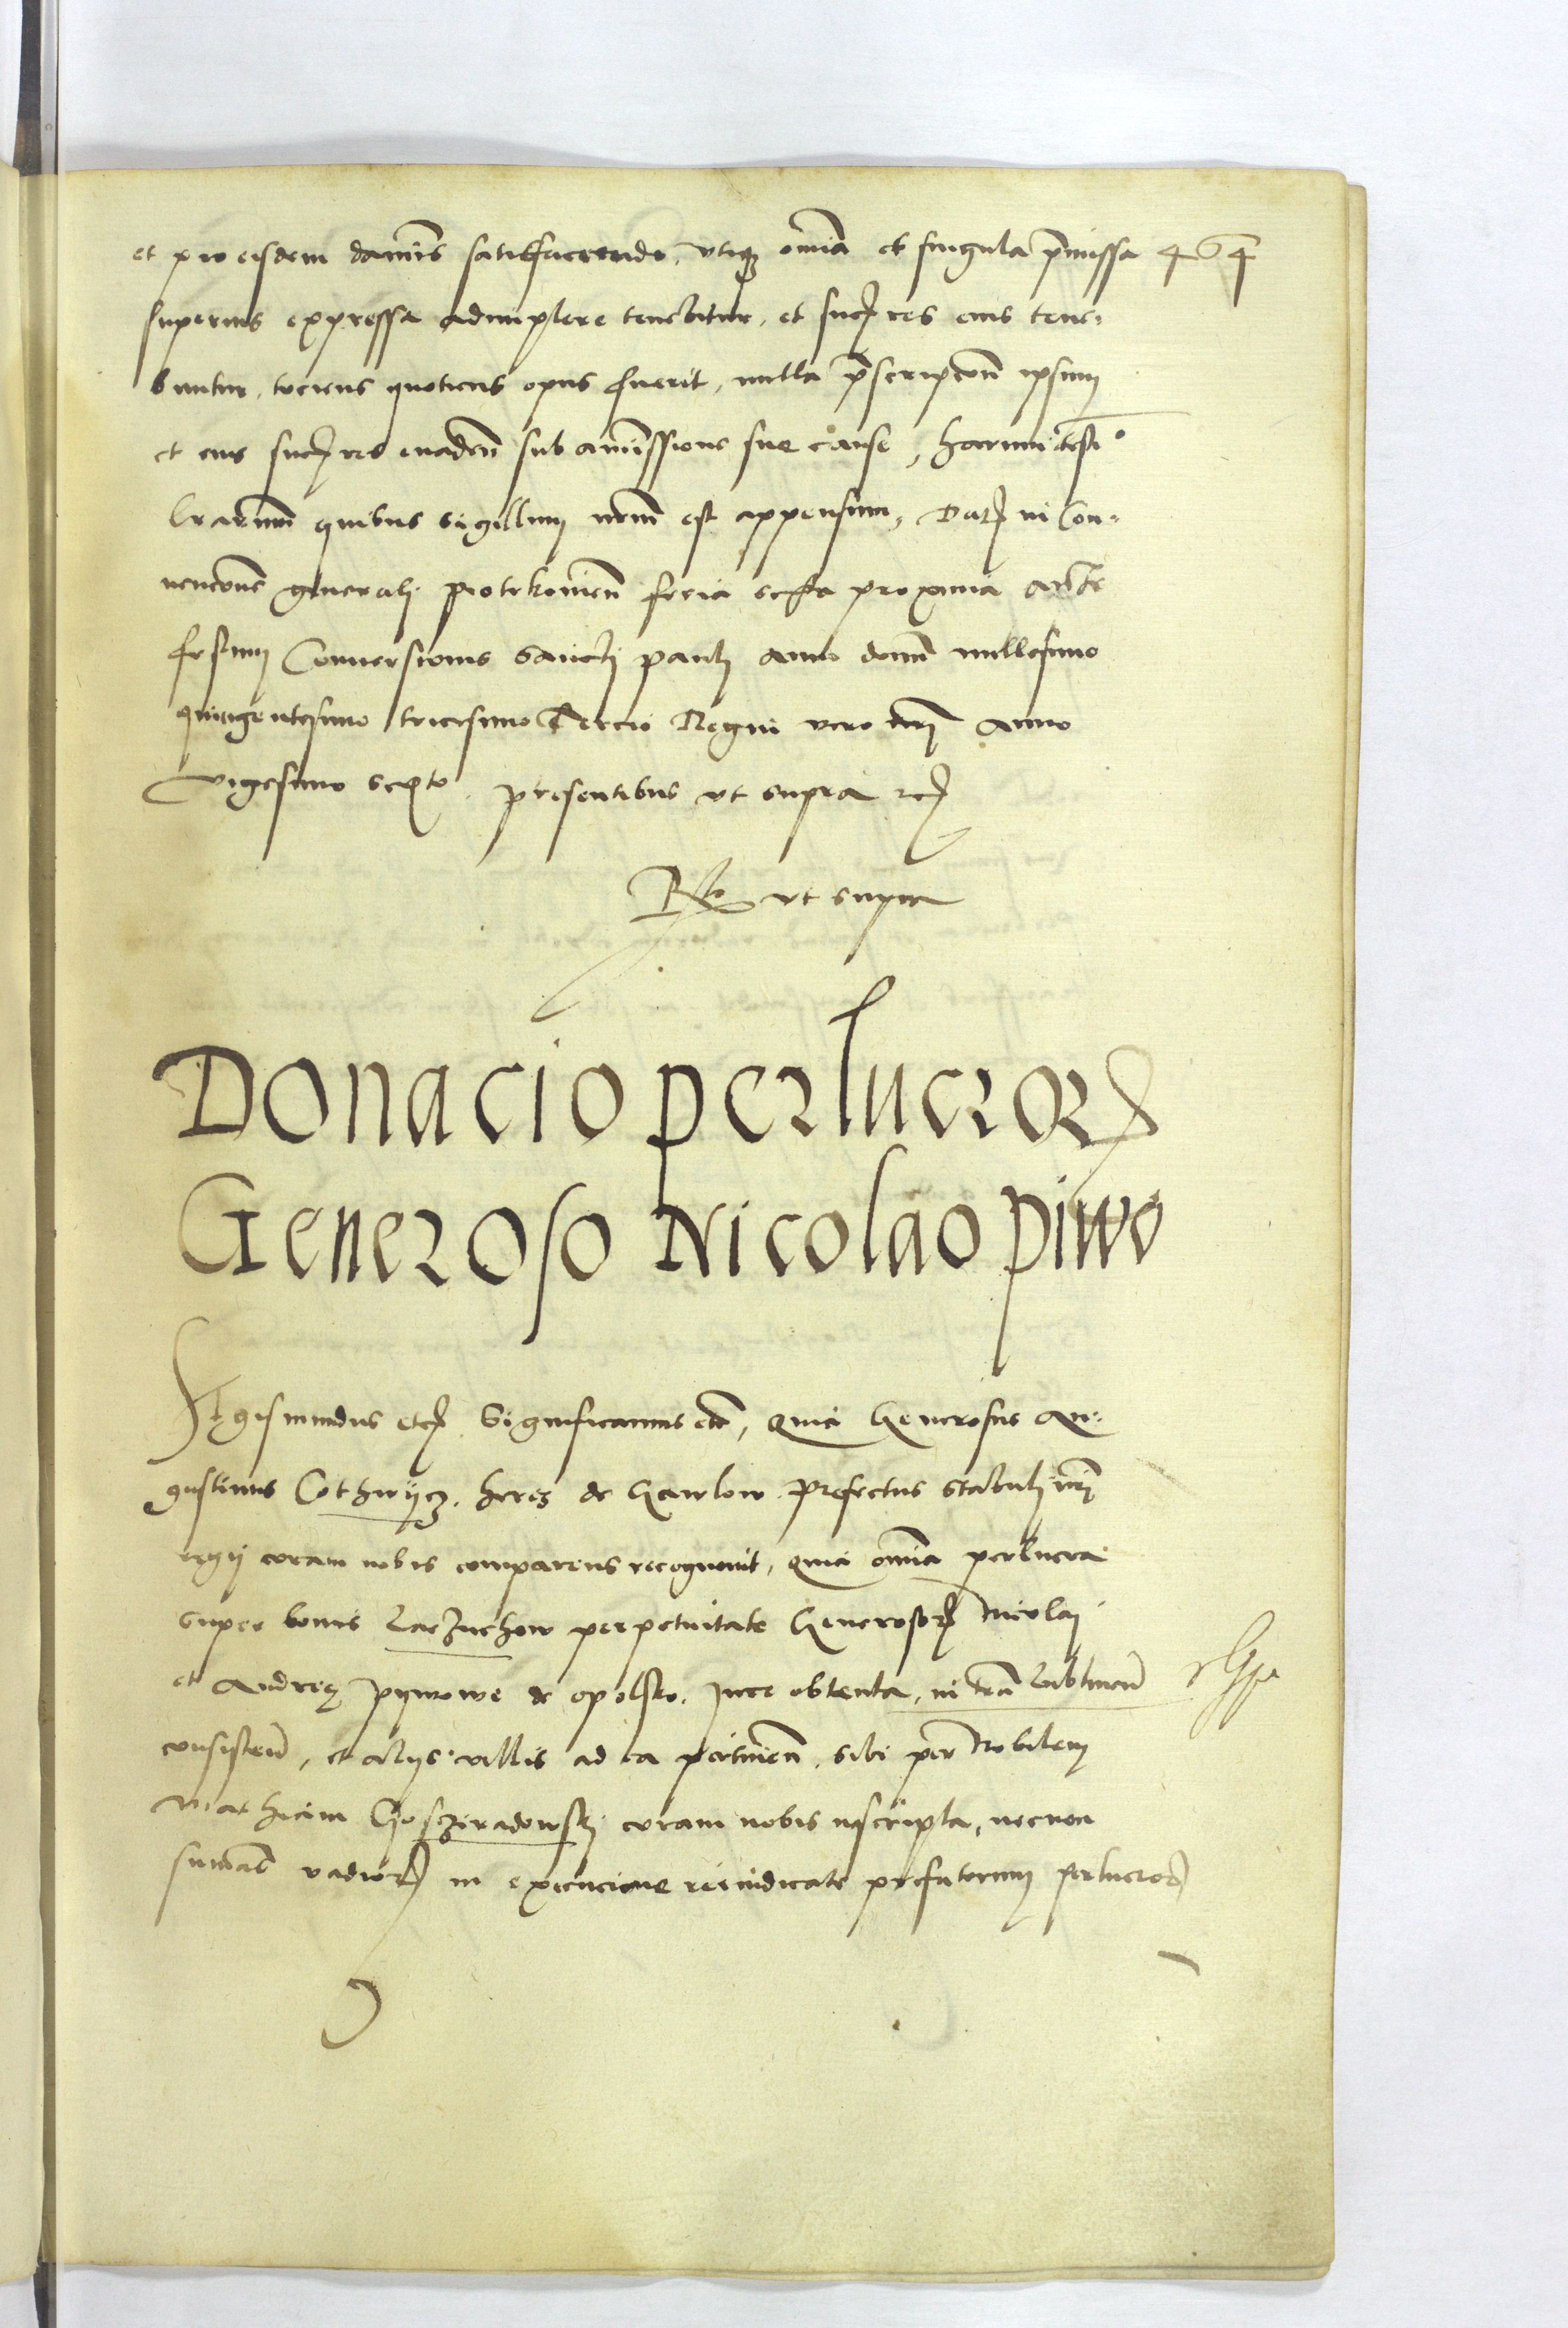 et pro eisdem damnis satisfaciendo, utiq3 omia et singula pmissa 464
superius expressa adimplere tenebitur, et succres eius tene-
buntur, tociens quotiens opus fuerit, nulla pscripcion ipsum
et eius succres evaden sub amissione sue cause, harum testio
lrarum quibus sigillum nrm est appensum, Dat in Con-
vencione generali piotrkovien feria sexta proxima ante
festum Conversionis Sancti pauli Anno domi millesimo
quingentesimo tricesimo Tercio Regni vero nri Anno
vigesimo sexto, presentibus ut supra etc
Rlo ut supra
Donacio perlucror
Generoso Nicolao piwo
Sigismundus etc Significamus etc, Quia Generosus Au-
gustinus Cothwycz, heres de Gawlow prefectus stabuli nri
regij coram nobis comparens recognovit, Quia omia perlucra
super bonis Laczuchow perpetuitate Generosor Nicolai
et Andree pywowe de opolsko, jure obtenta, in tra Lublinen
consisten, et alijs villis ad ea pertinen, sibi per Nobilem
Mathiam Gosczeradowski coram nobis inscripta, necnon
sumas vadior in execucione rei iudicate prefatorum perlucror